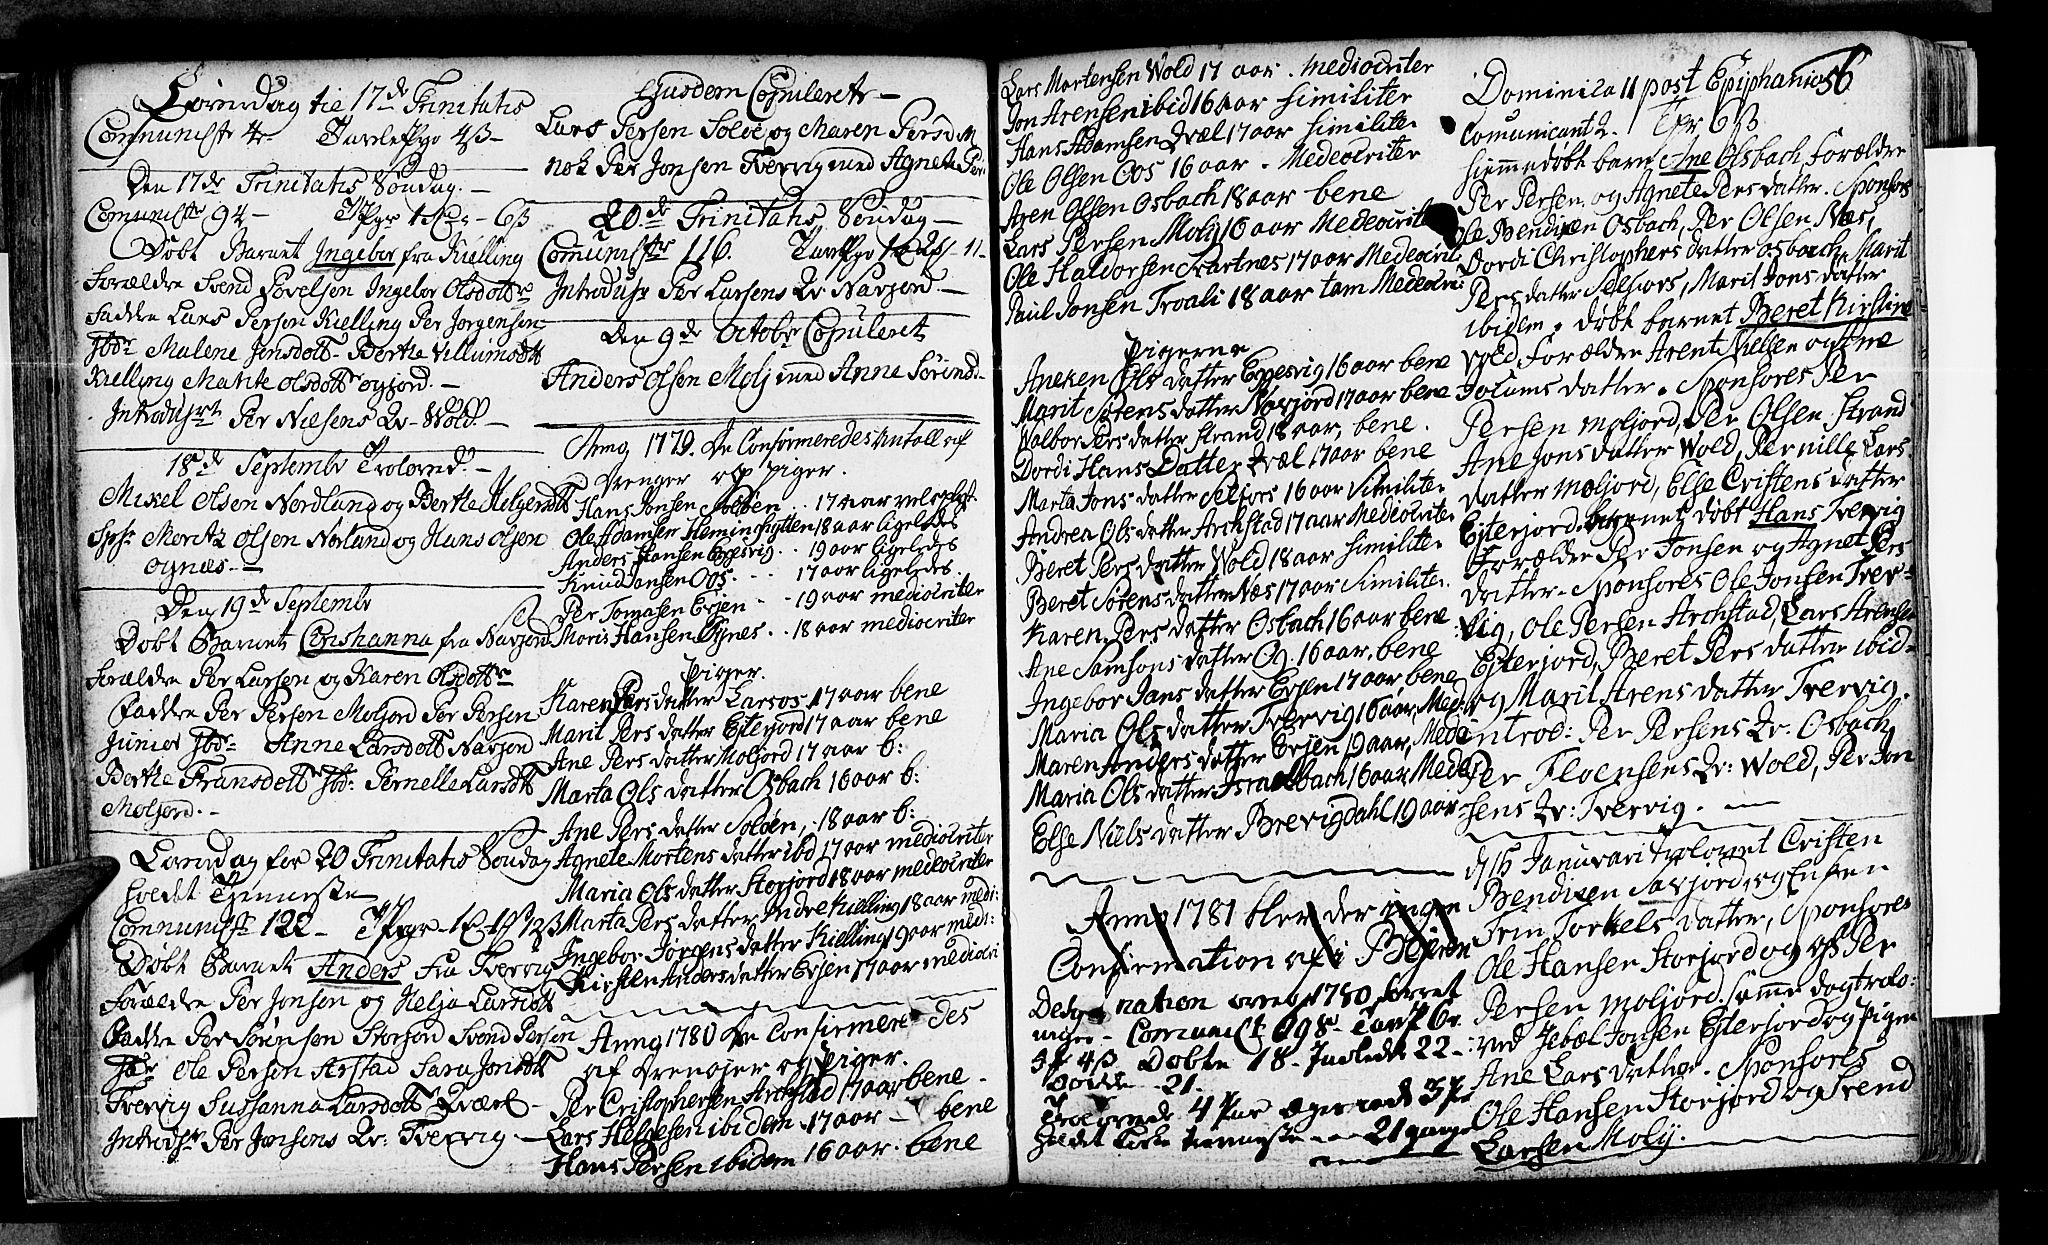 Løverdag til 17de Trinitatis
Communiste 4r Tavlepge 4β
Den 17de Trinitatis Søndag.
Comuniste 94 6β
Døbt Barnet Ingebor fra Kielling
Forældre Svend Povelsen Ingebor Olsdottr
Faddre Lars Person Kielling Per Jorgensen
Malene Jensdott Berthe Villumsdott
Kielling Marite Olsdottr ognjord.
Introdusrt Per Nielsens Qv Wold.
18de Septembr Troloved.
Mikel Olsen Nordland og Berthe Helgesdott
Sps: Moritz Olsen Norland og Hans Olsen
ognæs.
Den 19de Septembr
Døbt Barnet Conshanna fra Navjord
Forældre Per Larsen og Karen Olsdottr
Faddre Per Persen Moljord Per Persen
Junior Anne Larsdott Navjord
Berthe Fransdott Pernelle Larsdtt
Moljord.
Løverdag for 20 Trinitatis Søndag
holdt Tienneste
Communiste 122
Døbt Barnet Anders fra Tvervig
Forældre Per Jonsen og Helja Larsdott
Faddre Per Sørensen Storjord Svend Persen
Ole Person Arstad Sara Jonsdott
Tvervig Sussanna Larsdott Qvæl
Introdusrt Per Jonsens Qv: Tvervig
Ejusdem Copuleret
Lars Persen Soløe og Maren Persd
nok Per Jonsen Tvervig med Agnete Per
20de Trinitatis Søndag
Comuniste 116.
Introdusrt Per Larsens Qv Navjord.
Den 9de Octobr Copuleret
Anders Olsen Molj med Anne Sørensd
Anno 1779. De Confirmeredes Antall af
Drenger og Piger.
Hans Jonsen Soløen .. 17 aar vel oplyst.
Ole Adamsen Hemingshytten 18 aar ligeledes
Anders Hansen Eggesvig .. 19 aar ligeledes
Knud Jansen Oos. ... 17 aar ligeledes.
Per Tomasen Evjen .. 19 aar mediocriter
Moris Hansen Øgnes .. 18 aar mediocriter
Piger.
Karen Pers datter Larsos. 17 aar bene
Marit Pers datter Esterjord 17 aar bene
Ane Pers datter Moljord 17 aar b:
Marta Ols datter Osbach 16 aar b:
Ane Pers datter Soloen, . 18 aar b:
Agnete Mortens datter ibd 17 aar mediocriter
Maria Ols datter Storjord 18 aar mediocriter
Marta Pers datter Indre Kielling 18 aar medi:
Ingebor Jørgens datter Kielling 19 aar medi:
Kirsten Anders datter Evjen 17 aar mediocri
Anno 1780 De Confirmeredes
af Drenger og Piger.
Per Cristophersen Archstad 17 aar bene.
Lars Helgesen ibidem. 17 aar — bene
Hans Persen ibidem 16 aar. bene
Lars Mortensen Wold 17 aar. Mediocriter
Jon Arensen ibid 16 aar similiter
Hans Adamsen Qvæl 17 aar similiter
Ole Olsen Oos 16 aar. Mediocriter
Aren Olsen Osbach 18 aar bene
Lars Persen Molj 16 aar Mediocriter
Ole Haldorsen Svartnes 17 aar Mediocrit
Paul Jonsen Troali 18 aar tam Mediocri:
Pigerne
Aneken Ols datter Eggesvig 16 aar bene
Marit Sørens datter Navjord 17 aar bene
Walbor Pers datter Strand 18 aar, bene.
Dordi Hans Datter Qvæl 17 aar bene
Marta Jons datter Selfors 16 aar similiter
Andrea Ols datter Archstad 17 aar Mediocriter
Beret Pers datter Wold 18 aar similiter
Beret Sørens datter Næs 17 aar similiter
Karen Pers datter Osbach 16 aar bene
Ane Samsons datter Og. 16 aar, bene
Ingebor Jans datter Evjen 17 aar, bene
Maria Ols datter Tvervig 16 aar, Med
Maren Anders datter Evjen 19 aar, Medi
Maria Ols datter Israelbach 16 aar Medi
Else Niels datter Brevigdahl 19 aar
Anno 1781 blev der ingen
Confirmation af i Bejeren
Designation over 1780 forret
ninger. Comunict: 698
3β 4β Døbte 18. Inledde 22
Døde 21.
Trolovede 4 Par
holdt Kirke tienneste 21 gange
Dominica 11 post Epiphanios 56
Comunicant 2. 6β
hiemmedøbt barn Ane Osbach, forældre
Per Persen, og Agnete Pers datter. Sponsors
Ole Bendixen Osbach, Per Olsen Næs,
Dordi Christophers datter Osbach, Marit
Pers datter Selfors, Marit Jons datter
ibidem. døbt barnet Beret Kirstine
Wold, forældre Arent Nielsen og Ane
Joachims datter. Sponsores Per
Persen Moljord, Per Olsen Strand
Ane Jons datter Wold, Pernille Lars
datter Moljord, Else Cristens datter
Esterjord. barnet døbt Hans Tvervig
forældre Per Jonsen og Agnet Pers
datter. Sponsores Ole Jonsen Tver-
vig, Ole Persen Archstad, Lars Arensen
Esterjord, Beret Pers datter ibid
og Marit Arens datter Tvervig.
introd: Per Persens Qv: Osbach,
Per Qv: Wold, Per Jon
sens Qv: Tvervig.
d 15 Januari trolovet Cristen
Bendixen Saxjord, og Enken
Trin Torkels datter, Sponsores
Ole Hansen Storjord og Per
Persen Moljord. samme dag trolo:
ved Jebæl Jonsen Esterjord og Pigen
Ane Lars datter. Sponsores
Ole Hansen Storjord og Svend
Larsen Molij.